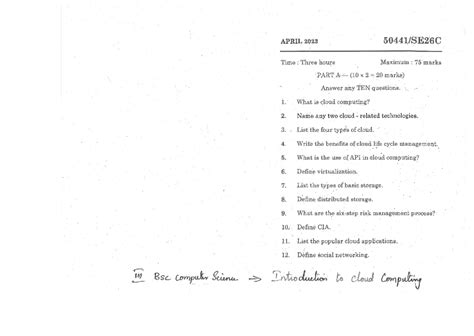 APRIL 2023 50441/SE26C
Time : Three hours Maximum : 75 marks
PART A — (10 × 2 = 20 marks)
Answer any TEN questions.
1. What is cloud computing?
2. Name any two cloud - related technologies.
3. List the four types of cloud.
4. Write the benefits of cloud life cycle management.
5. What is the use of API in cloud computing?
6. Define virtualization.
7. List the types of basic storage.
8. Define distributed storage.
9. What are the six-step risk management process?
10. Define CIA.
11. List the popular cloud applications.
12. Define social networking.
III Bsc Computer Science → Introduction to cloud Computing